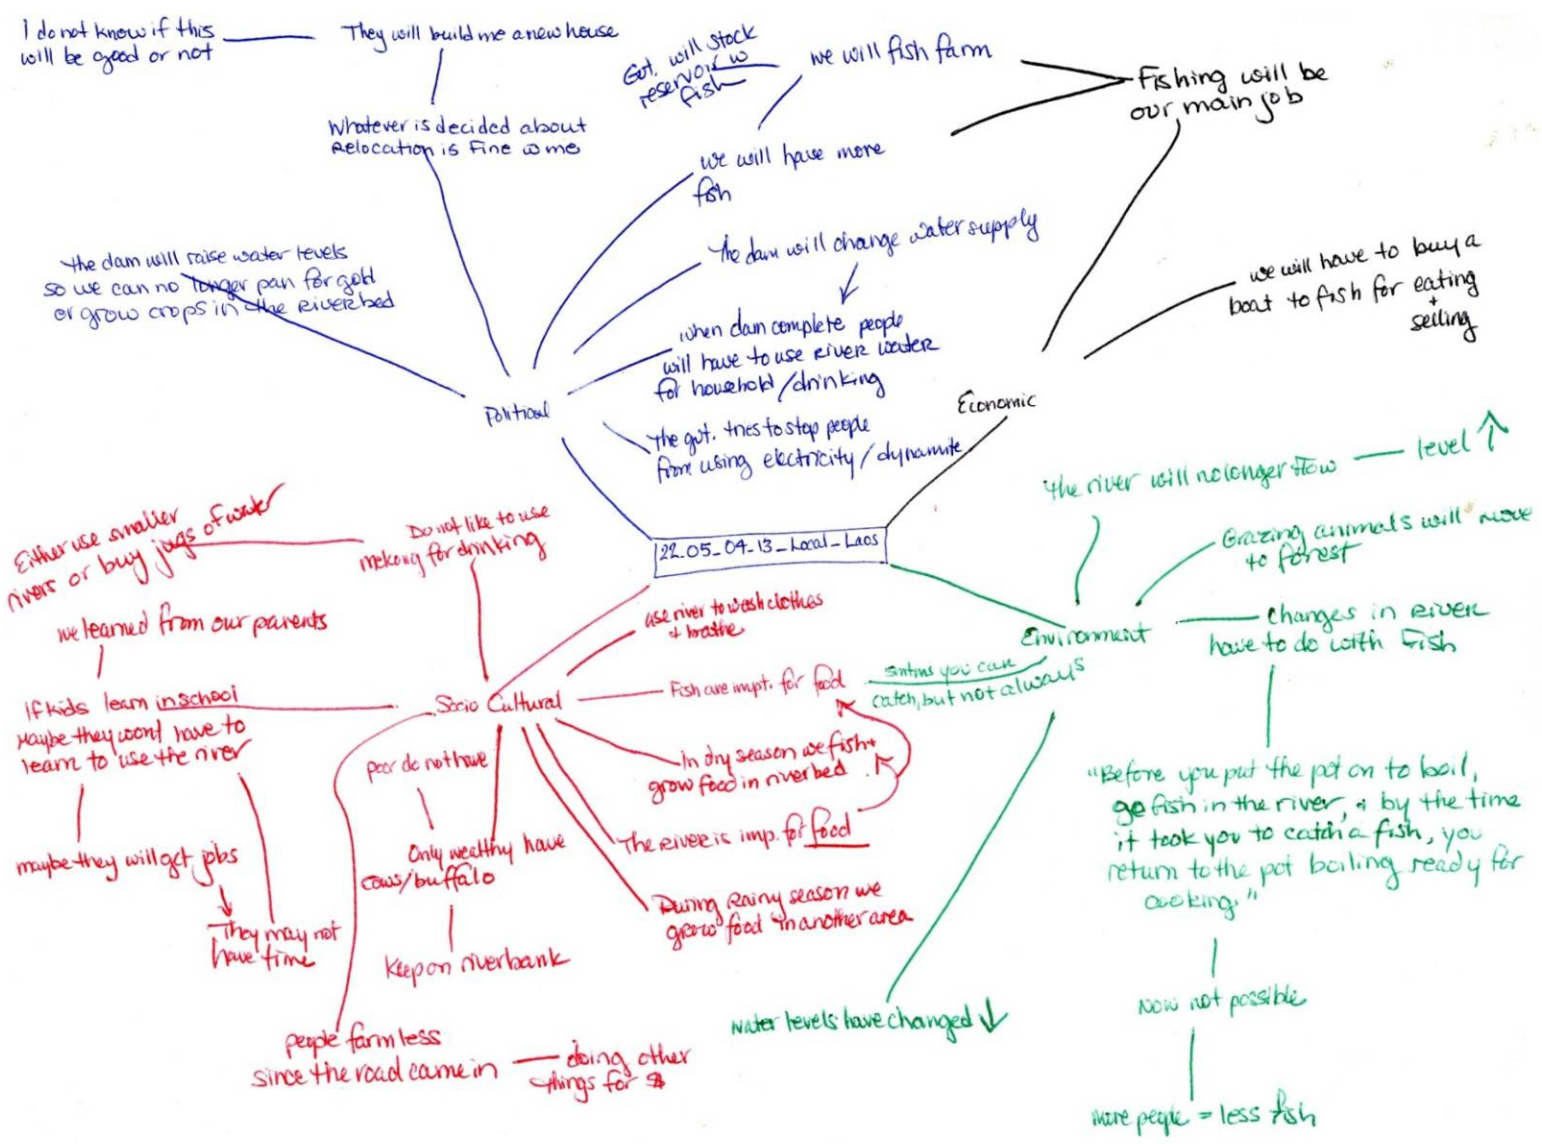 I do not know if this
will be good or not
They will build me a new house
Whatever is decided about
Relocation is Fine w me
Gvt. will stock
reservoir w
fish
we will fish farm
we will have more
fish
Fishing will be
our main job
the dam will raise water levels
so we can no longer pan for gold
or grow crops in the Riverbed
the dam will change water supply
when dam complete people
will have to use River water
for household/drinking
The gvt. tries to stop people
from using electricity/dynamite
Political
we will have to buy a
boat to fish for eating
+
selling
Economic
22_05_04_13_Local_Laos
the river will no longer flow
level ↑
Grazing animals will move
to forest
Environment
changes in River
have to do with Fish
smtms you can
catch, but not always
"Before you put the pot on to boil,
go fish in the river, + by the time
it took you to catch a fish, you
return to the pot boiling ready for
cooking."
Now not possible
more people = less fish
water levels have changed ↓
Either use smaller
rivers or buy jugs of water
Do not like to use
mekong for drinking
use river to wash clothes
+ bathe
we learned from our parents
If kids learn in school
Maybe they wont have to
learn to use the river
maybe they will get jobs
They may not
have time
Socio Cultural
Fish are impt. for food
In dry season we fish +
grow food in riverbed
The River is imp. for food
During Rainy season we
grow food in another area
poor do not have
Only wealthy have
cows/buffalo
Keep on riverbank
people farm less
since the road came in
doing other
things for $